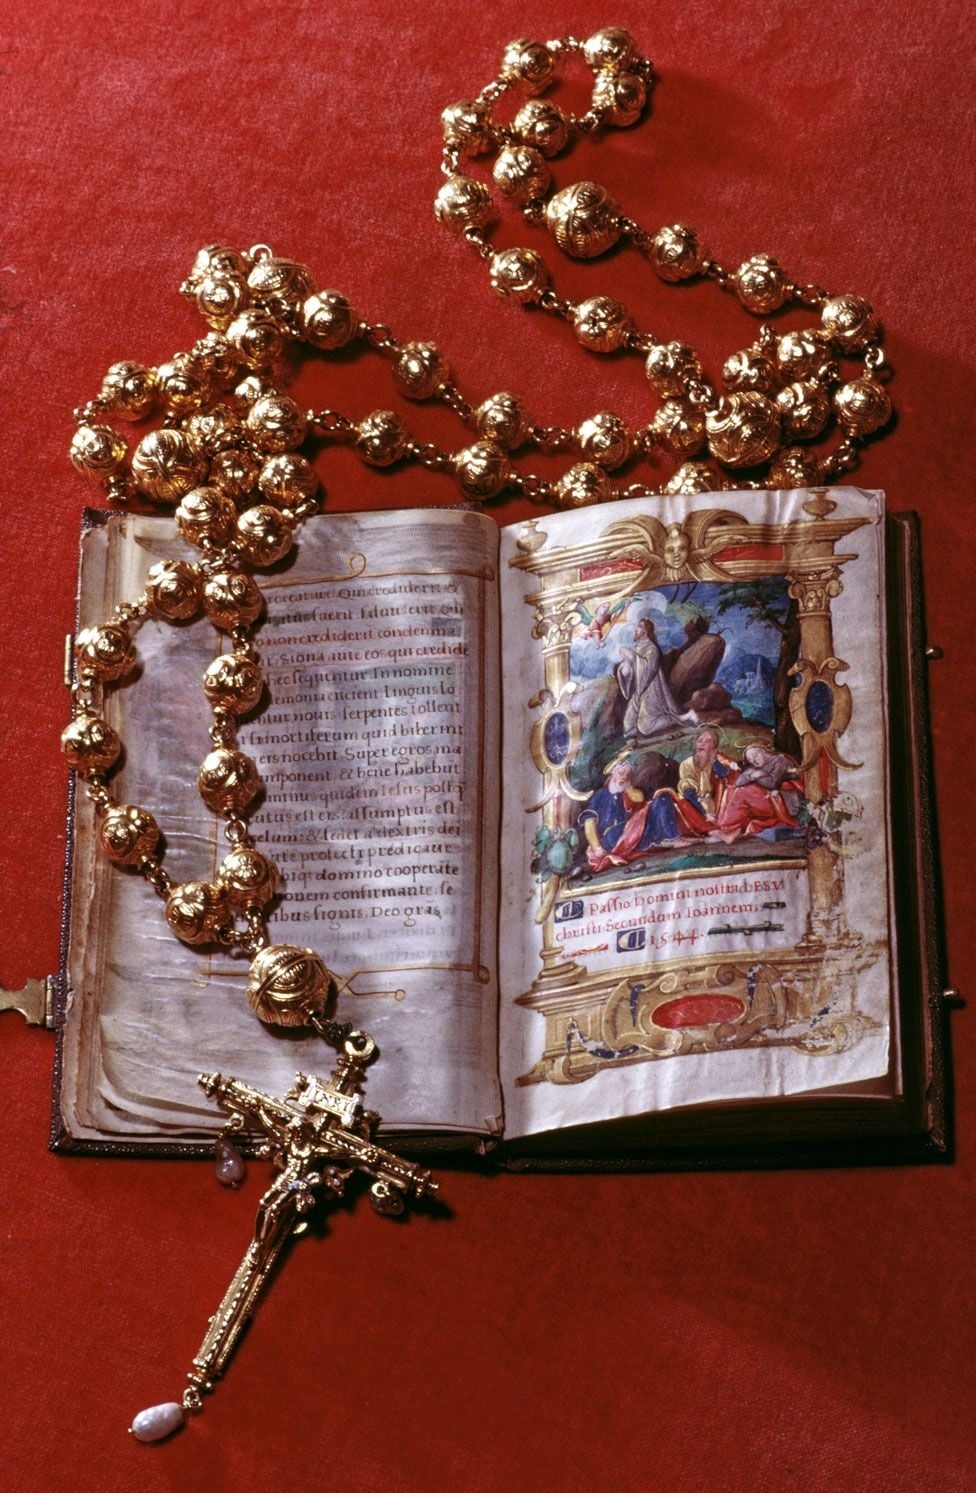 creature. Qui crediderit &
fuerit, saluus erit. Qui
non crediderit condemna
Signa aute eos qui credide
hec sequentur. In nomine
eiicient. linguis lo
nouis. serpentes tollent
mortiferum quid biberint
eis nocebit. Super egros ma
imponent & bene habebut.
quidem Iesus postq̄
est eis: assumptus est
celum: & sedet a dextris dei
profecti predicaue
domino cooperāte
confirmante. se
signis. Deo grās
Passio Domini nostri IESV
christi Secundum Ioannem.
1544.